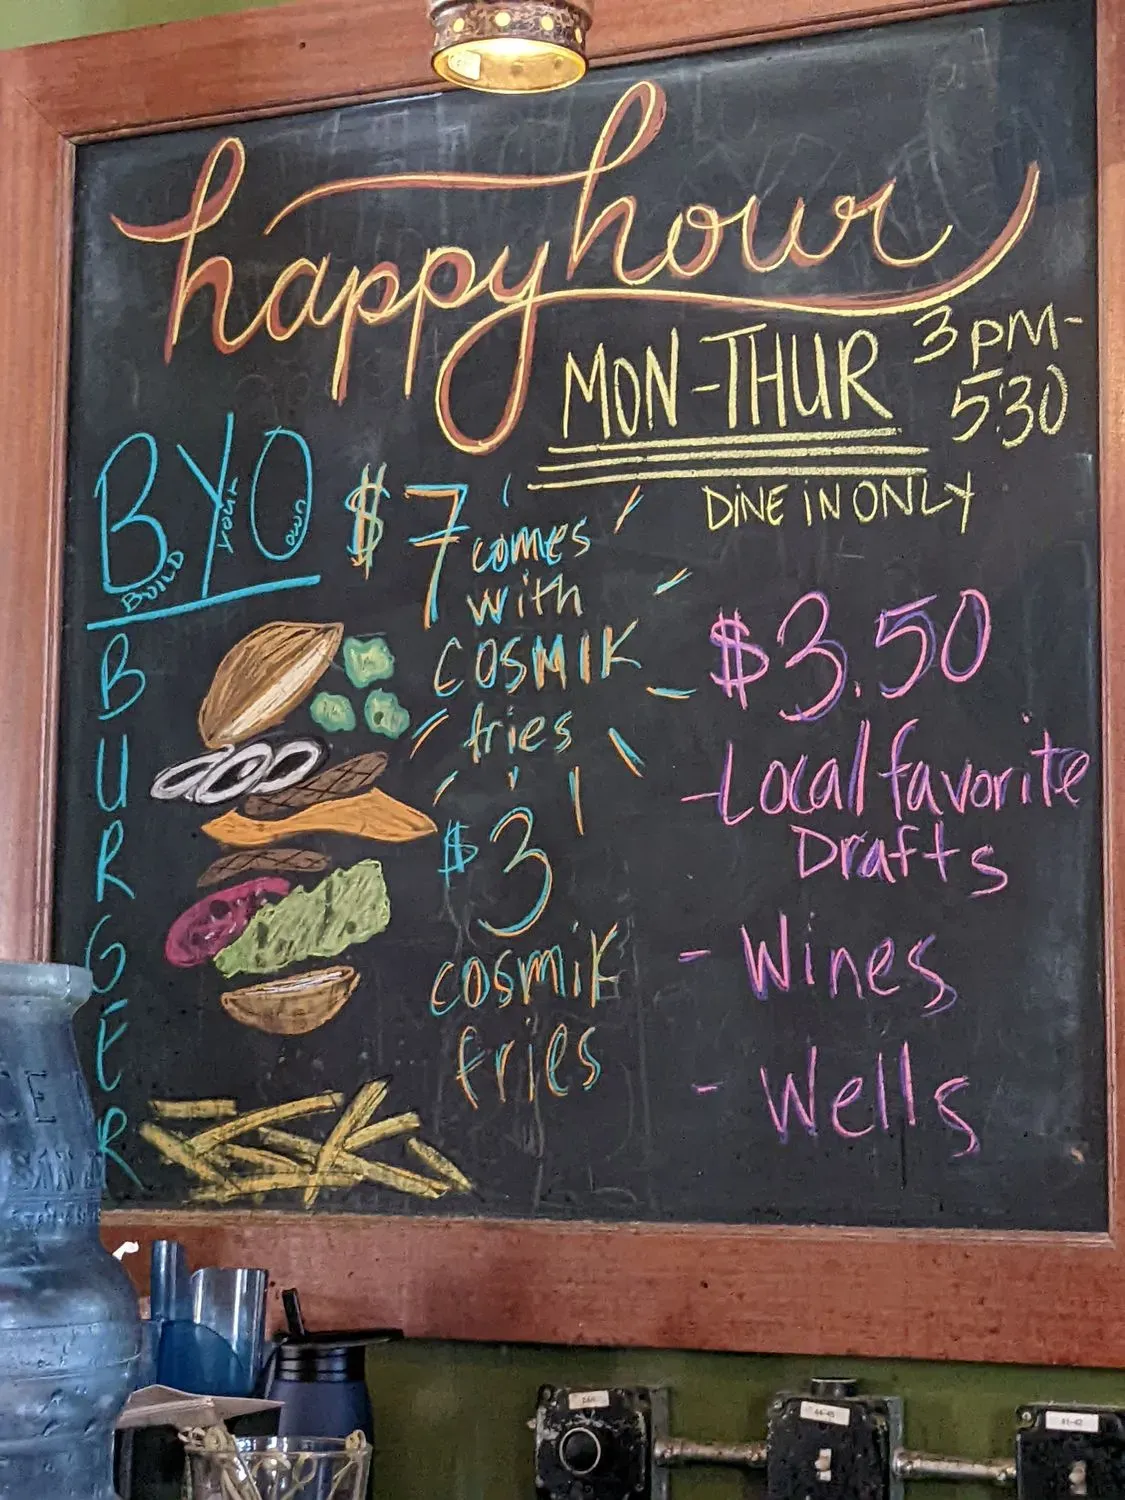 happy hour
MON-THUR 3PM-
5:30
DINE IN ONLY
BYO
BUILD YOUR OWN
BURGER
$7 comes
with
COSMIK
fries
$3
cosmik
fries
$3.50
- Local favorite
Drafts
- Wines
- Wells
44-45
41-42